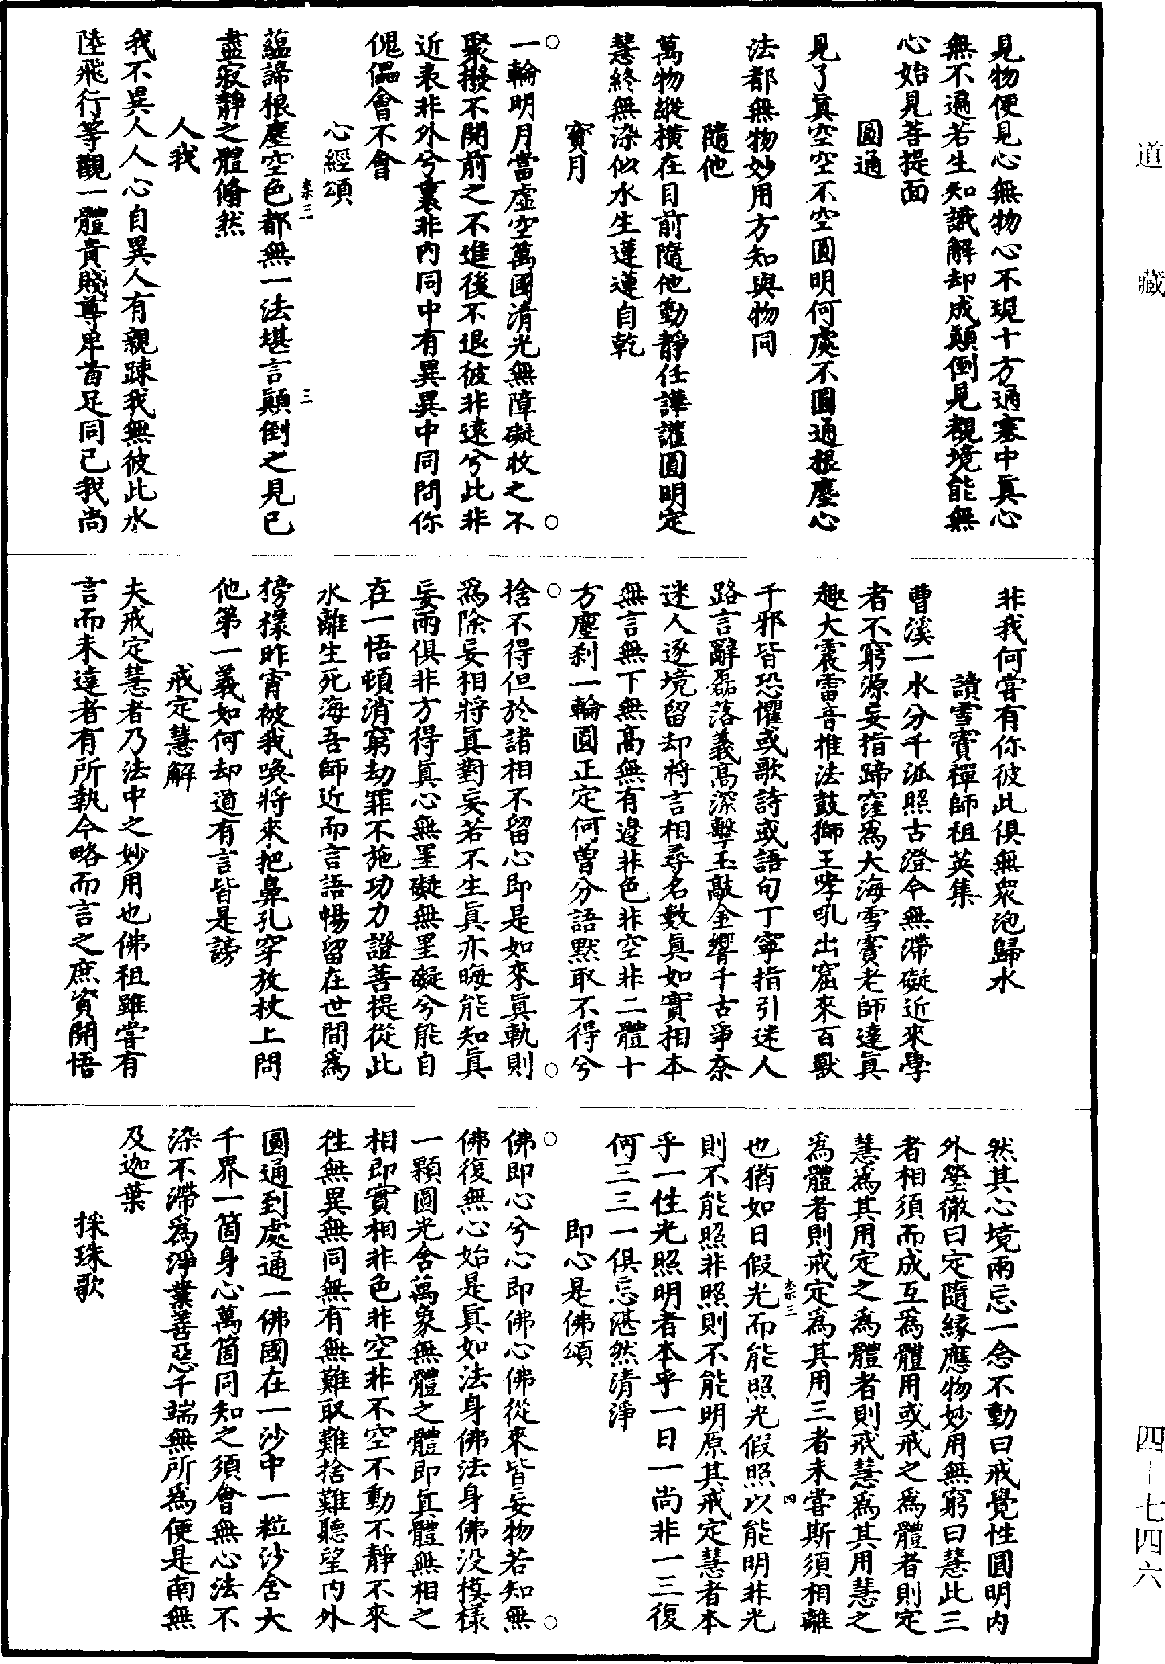 道藏
見物便見心無物心不現十方通塞中真心
無不遍若生知識解却成顛倒見覩境能無
心始見菩提面
圓通
見了真空空不空圓明何處不圓通根塵心
法都無物妙用方知與物同
隨他
萬物縱橫在目前隨他動靜任諠讙圓明定
慧終無染似水生蓮蓮自乾
寶月
一輪明月當虛空萬國清光無障礙收之不
聚撥不開前之不進後不退彼非遠兮此非
近表非外兮裏非內同中有異異中同問你
傀儡會不會
心經頌
蘊諦根塵空色都無一法堪言顛倒之見已
盡寂靜之體翛然
人我
我不異人人心自異人有親踈我無彼此水
陸飛行等觀一體貴賤尊卑首足同已我尚
非我何嘗有你彼此俱無衆泡歸水
讀雪竇禪師祖英集
曹溪一水分千派照古澄今無滯礙近來學
者不窮源妄指蹄窪爲大海雪竇老師達真
趣大震雷音推法鼓獅王哮吼出窟來百獸
千邪皆恐懼或歌詩或語句丁寧指引迷人
路言辭磊落義高深擊玉敲金響千古爭奈
迷人逐境留却將言相尋名數真如實相本
無言無下無高無有邊非色非空非二體十
方塵刹一輪圓正定何曾分語默取不得兮
捨不得但於諸相不留心即是如來真軌則
爲除妄相將真對妄若不生真亦晦能知真
妄兩俱非方得真心無罣礙無罣礙兮能自
在一悟頓消窮劫罪不施功力證菩提從此
永離生死海吾師近而言語暢留在世間爲
榜樣昨宵被我喚將來把鼻孔穿放杖上問
他第一義如何却道有言皆是謗
戒定慧解
夫戒定慧者乃法中之妙用也佛祖雖嘗有
言而未達者有所執今略而言之庶資開悟
然其心境兩忘一念不動曰戒覺性圓明內
外瑩徹曰定隨緣應物妙用無窮曰慧此三
者相須而成互爲體用或戒之爲體者則定
慧爲其用定之爲體者則戒慧爲其用慧之
爲體者則戒定爲其用三者未嘗斯須相離
也猶如日假光而能照光假照以能明非光
則不能照非照則不能明原其戒定慧者本
乎一性光照明者本乎一日一尚非一三復
何三三一俱忘湛然清淨
即心是佛頌
佛即心兮心即佛心佛從來皆妄物若知無
佛復無心始是真如法身佛法身佛沒模樣
一顆圓光含萬象無體之體即真體無相之
相即實相非色非空非不空不動不靜不來
往無異無同無有無難取難捨難聽望內外
圓通到處通一佛國在一沙中一粒沙含大
千界一箇身心萬箇同知之須會無心法不
染不滯爲淨業善惡千端無所爲便是南無
及迦葉
採珠歌
四－七四六